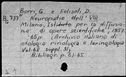 Borri, G. e Falcoli, D.
Neuropatie dell' VIII.
Milano, Istituto per la diffusione
di opere scientifiche, 1957.
65p. (Archivio italiano di
otologia rinologia e laringologia
Vol. 68. suppl. 31)
Bibliogr. p.